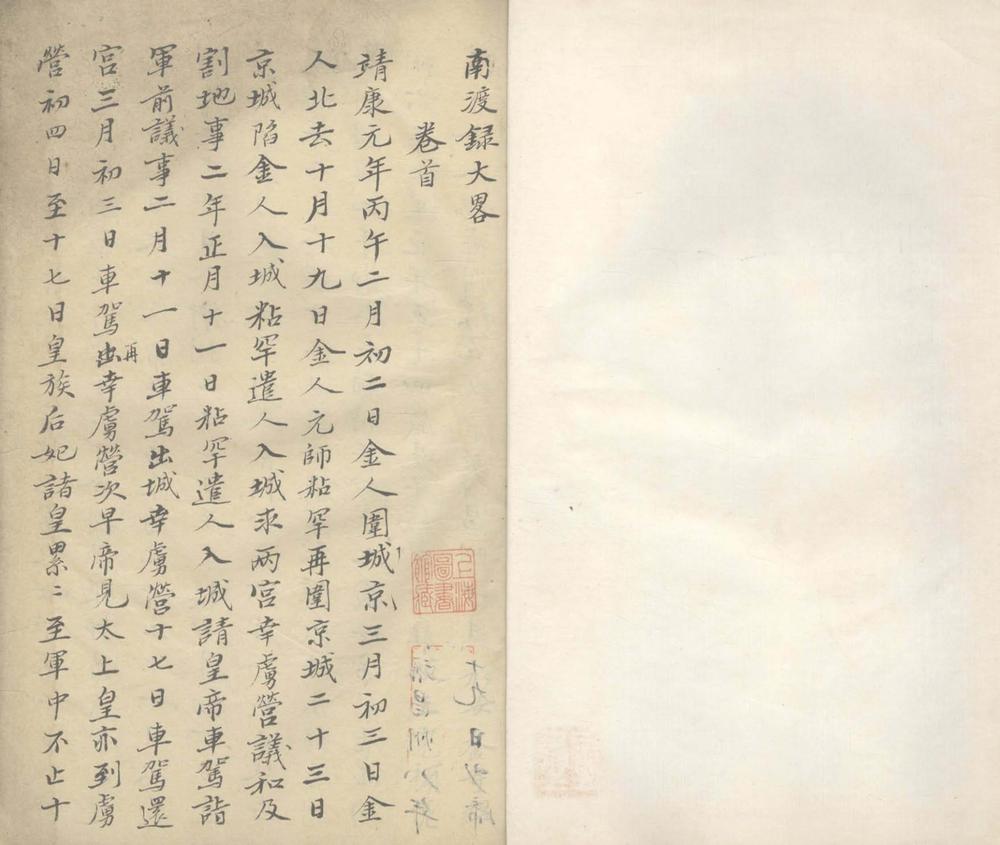 南渡録大畧
卷首
靖康元年丙午二月初二日金人圍城京三月初三日金
人北去十月十九日金人元師粘罕再圍京城二十三日
京城陷金人入城粘罕遣人入城求两宫幸虜營議和及
割地事二年正月十一日粘罕遣人入城請皇帝車駕詣
軍前議事二月十一日車駕出城幸虜營十七日車駕還
宫三月初三日車駕出再幸虜營次早帝見太上皇亦到虜
營初四日至十七日皇族后妃諸皇累〻至軍中不止十
上海
圖書
館藏